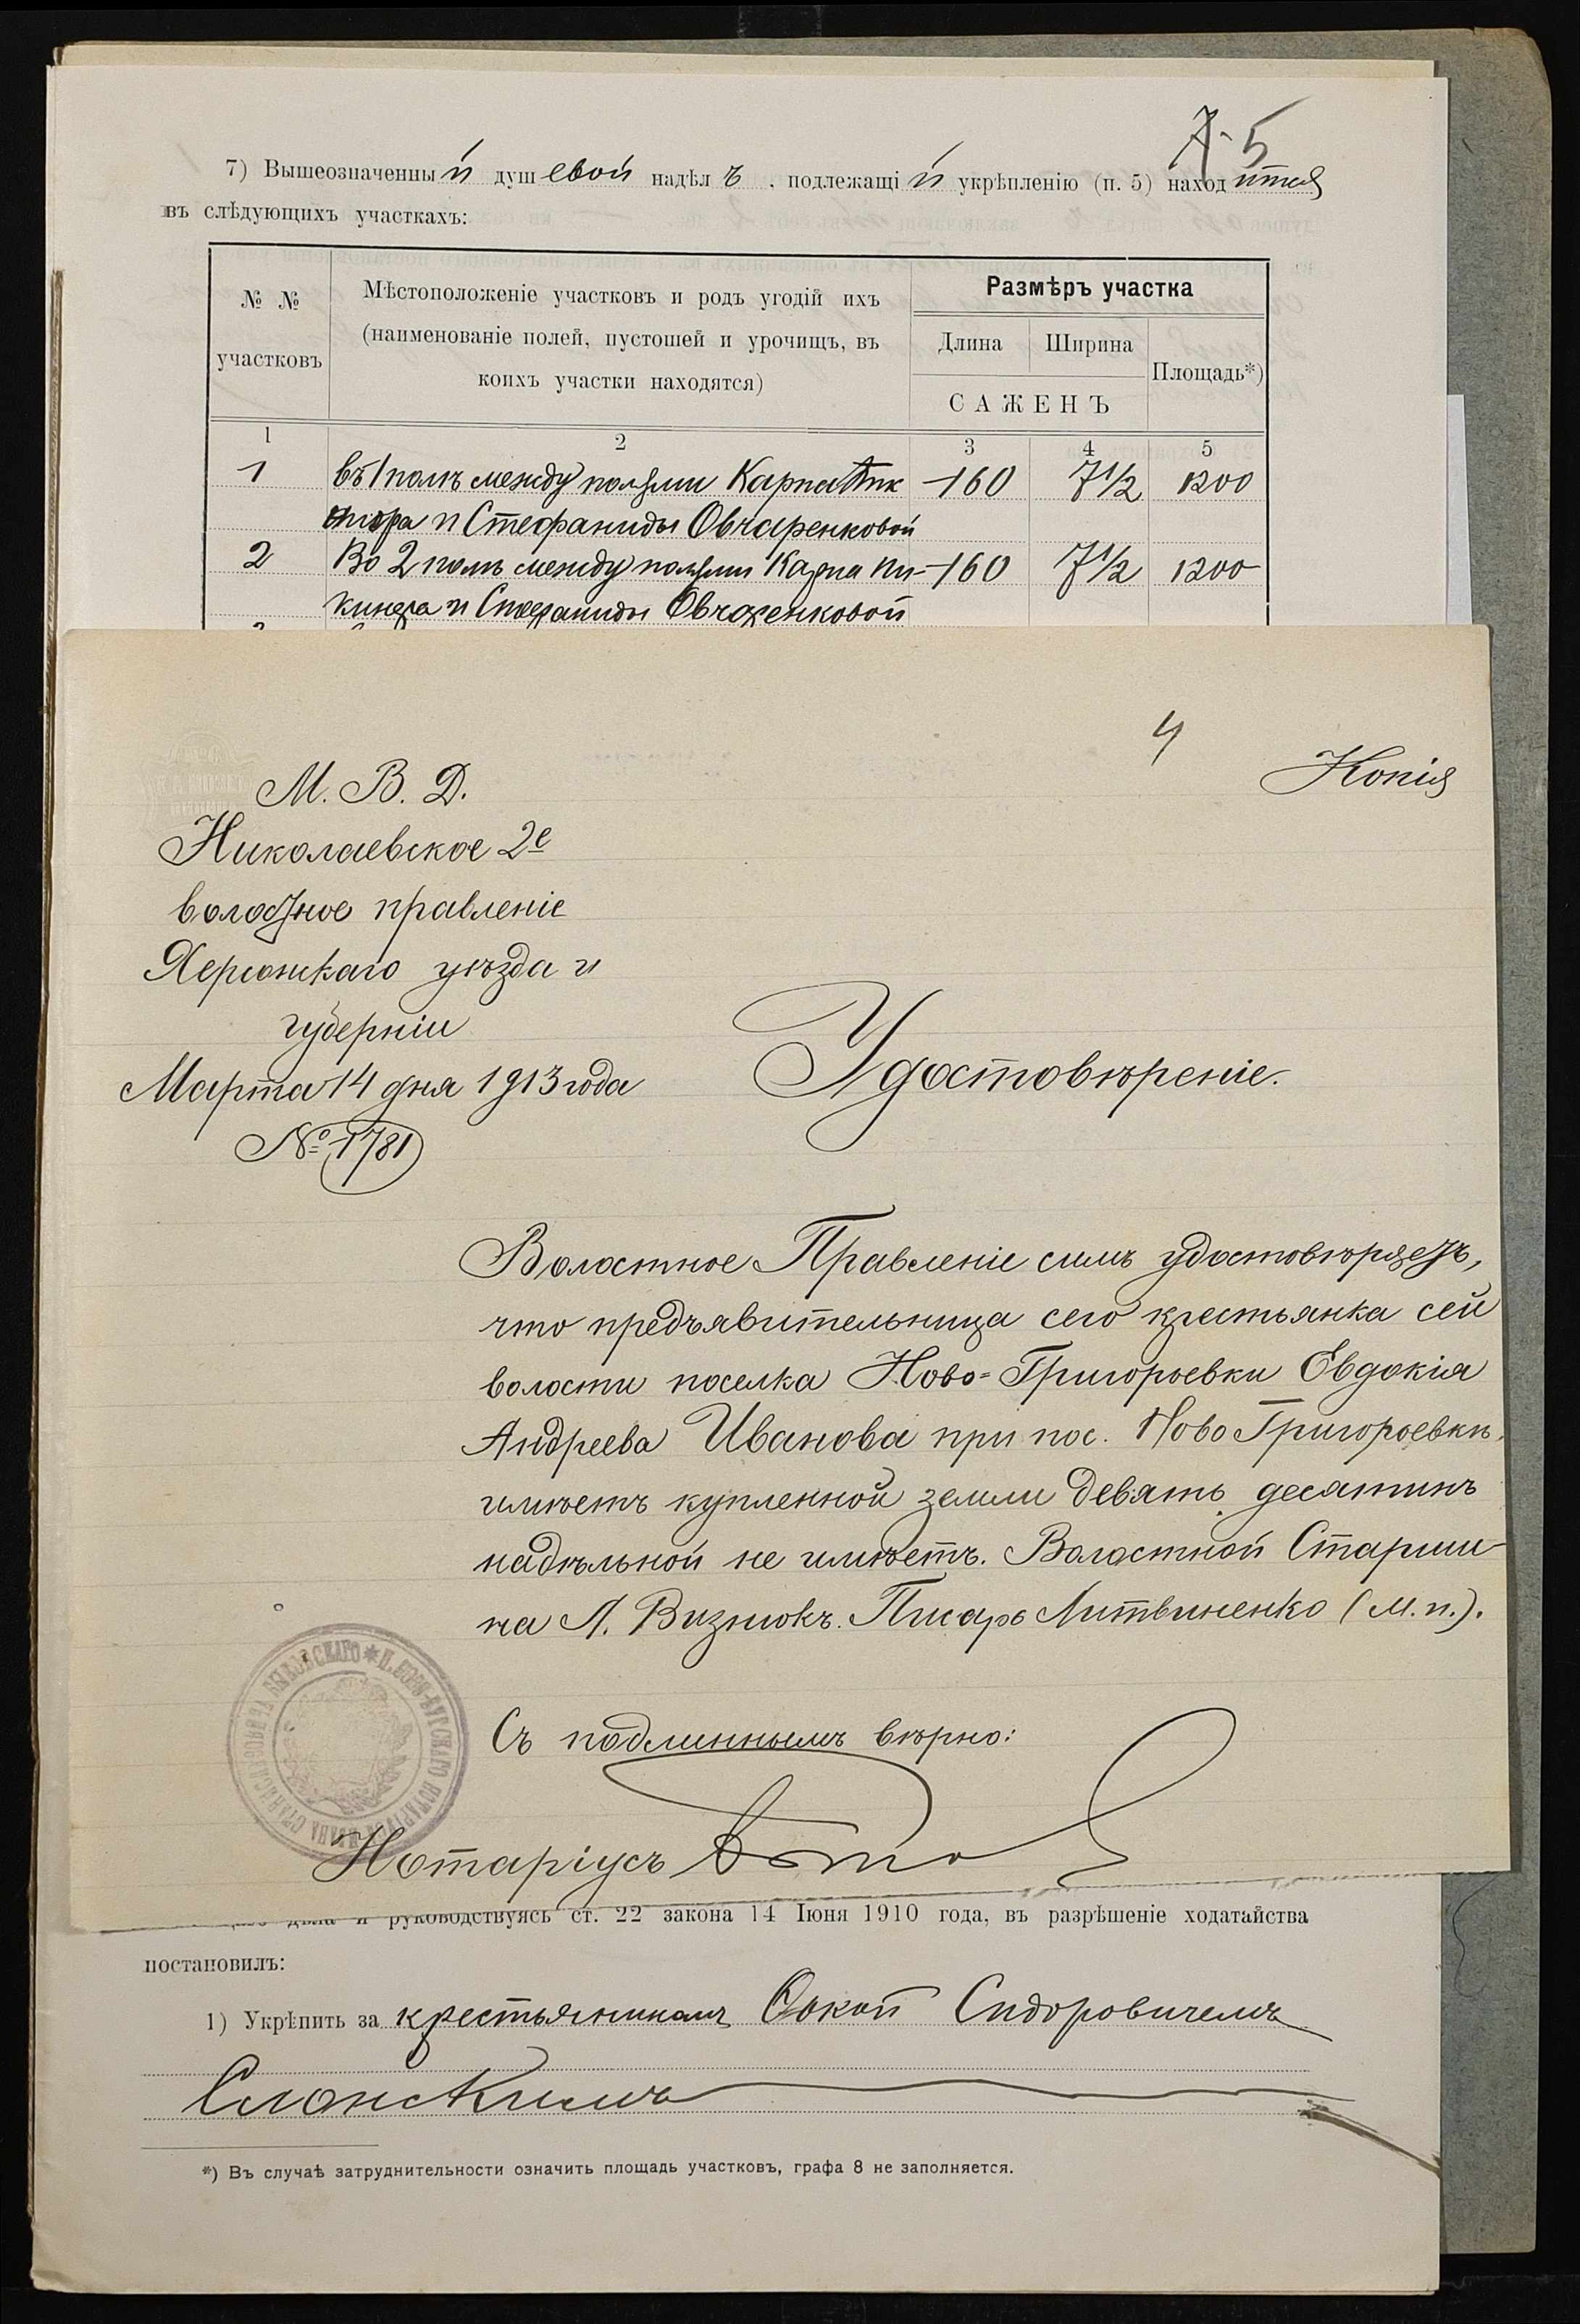 7 5
7) Вышеозначенный душевой надѣлъ, подлежащій укрѣпленію (п. 5) находится
въ слѣдующихъ участкахъ:
№ № участковъ
Мѣстоположеніе участковъ и родъ угодій ихъ
(наименованіе полей, пустошей и урочищъ, въ
коихъ участки находятся)
Размѣръ участка
Длина Ширина Площадь*)
САЖЕНЪ
1 2 3 4 5
1 въ 1 полѣ между полями Карпа 160 7 1/2 1200
и Стефаниды Овчаренковой
2 Во 2 полѣ между полями Карпа Ни- 160 7 1/2 1200
кинора и Стефаниды Овчаренковой
4
Копія
М. В. Д.
Николаевское 2е
волостное правленіе
Херсонскаго уѣзда и
губерніи
Марта 14 дня 1913 года
№ 1781
Удостовѣреніе.
Волостное Правленіе симъ удостовѣряетъ,
что предъявительница сего крестьянка сей
волости поселка Ново-Григорьевки Евдокія
Андреева Иванова при пос. Ново Григорьевкѣ
имѣетъ купленной земли девять десятинъ
надѣльной не имѣетъ. Волостной Старши-
на А. Визнюкъ. Писарь Литвиненко (М. п.).
Съ подлиннымъ вѣрно:
Нотаріусъ
дѣла и руководствуясь ст. 22 закона 14 Іюня 1910 года, въ разрѣшеніе ходатайства
постановилъ:
1) Укрѣпить за крестьяниномъ Сидоровичемъ
Слонскимъ
*) Въ случаѣ затруднительности означить площадь участковъ, графа 8 не заполняется.